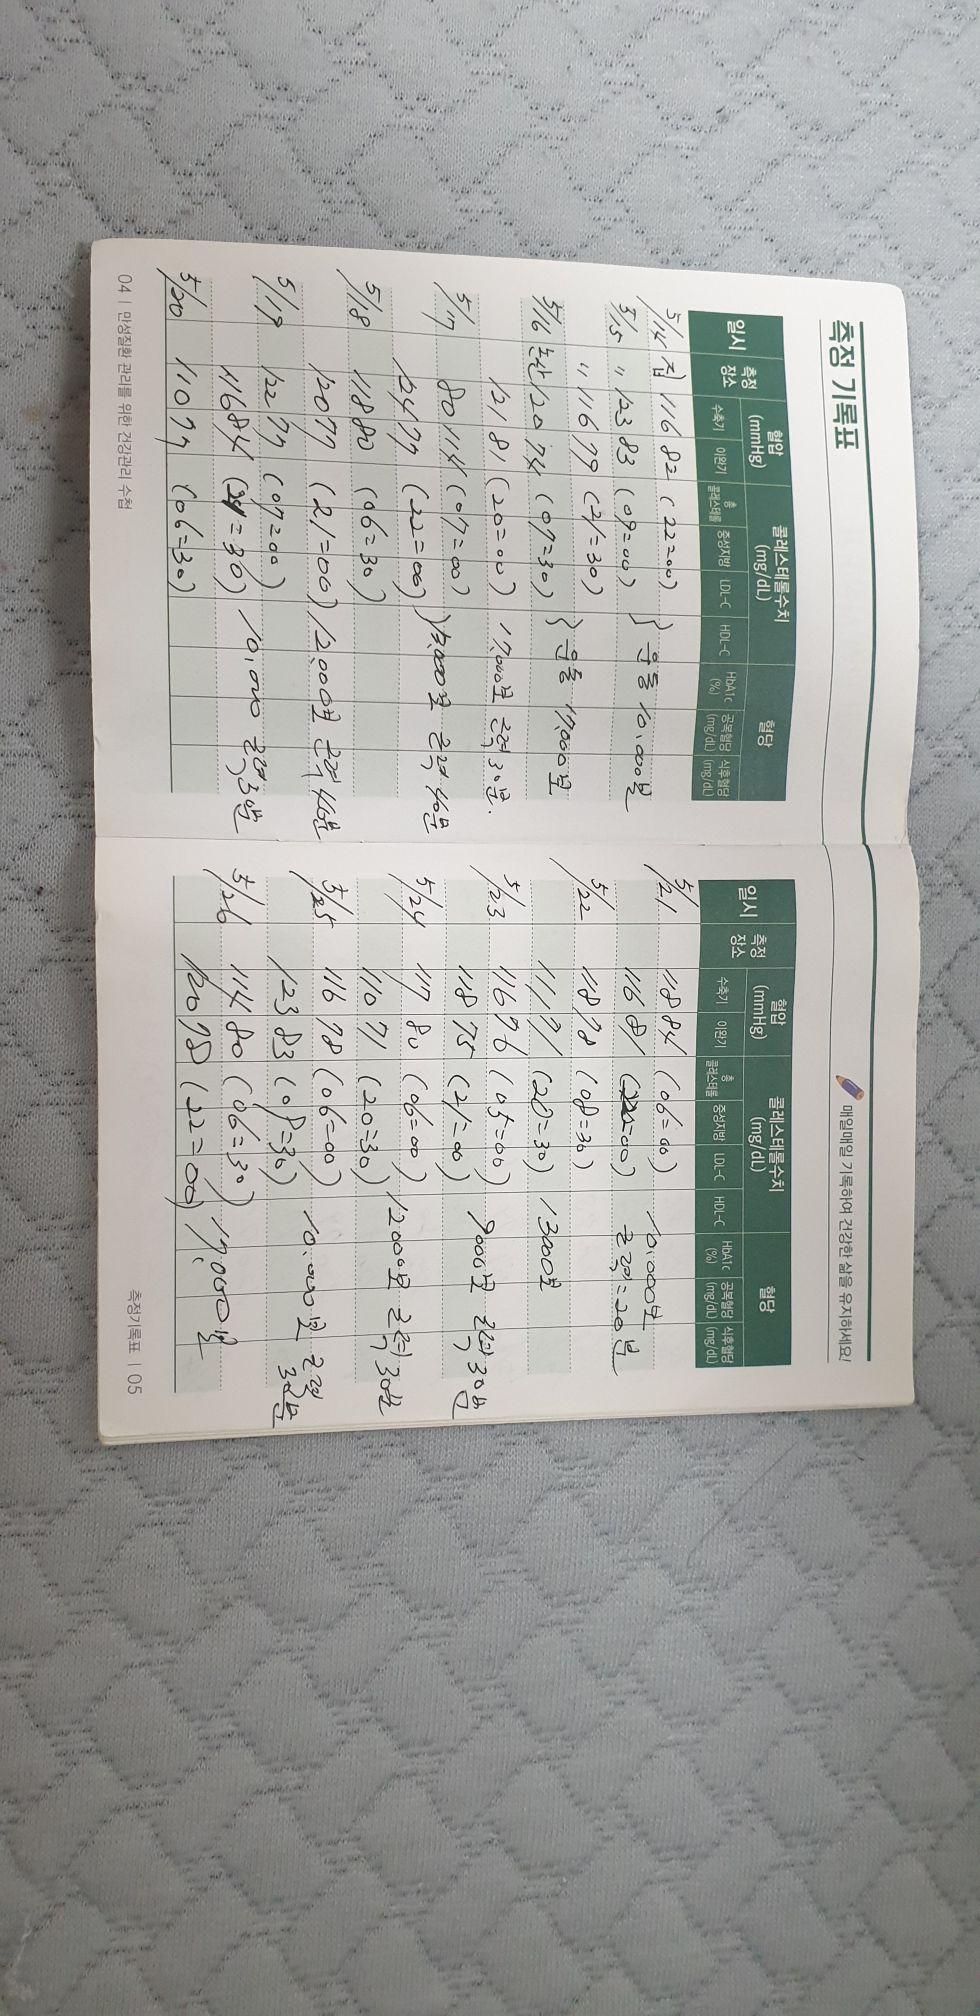 측정 기록표
일시 측정 장소 혈압 (mmHg) 콜레스테롤수치 (mg/dL) 혈당
수축기 이완기 총 콜레스테롤 중성지방 LDL-C HDL-C HbA1c (%) 공복혈당 (mg/dL) 식후혈당 (mg/dL)
5/14 집 116 82 (22=00)
5/15 〃 123 83 (09=00) } 운동 10,000보
〃 116 79 (21=30)
5/16 120 74 (07=30) } 운동 17,000보
121 81 (20=00) 17,000보 근력 30분.
5/17 80 114 (07=00)
124 77 (22=00) 근력 40분
5/18 118 82 (06=30)
120 77 (21=00) 12,000보 근력 40분
5/19 122 77 (07=00)
116 84 10,000 근력 30분
5/20 110 77 (06=30)
04 | 만성질환 관리를 위한 건강관리 수첩
매일매일 기록하여 건강한 삶을 유지하세요!
일시 측정 장소 혈압 (mmHg) 콜레스테롤수치 (mg/dL) 혈당
수축기 이완기 총 콜레스테롤 중성지방 LDL-C HDL-C HbA1c (%) 공복혈당 (mg/dL) 식후혈당 (mg/dL)
5/21 118 84 (06=00)
116 81 10,000보 근력=20분
5/22 118 78 (08=30)
111 71 (20=30) 13000보
5/23 116 76 (05=00)
118 75 (21=00) 9000보 근력 30분
5/24 117 80 (06=00)
110 71 (20=30) 12000보 근력 30분
5/25 116 78 (06=00)
123 83 (08=30) 10,000보 근력 30분
5/26 114 80 (06=30)
120 78 (22=00) 17,000보
측정기록표 | 05